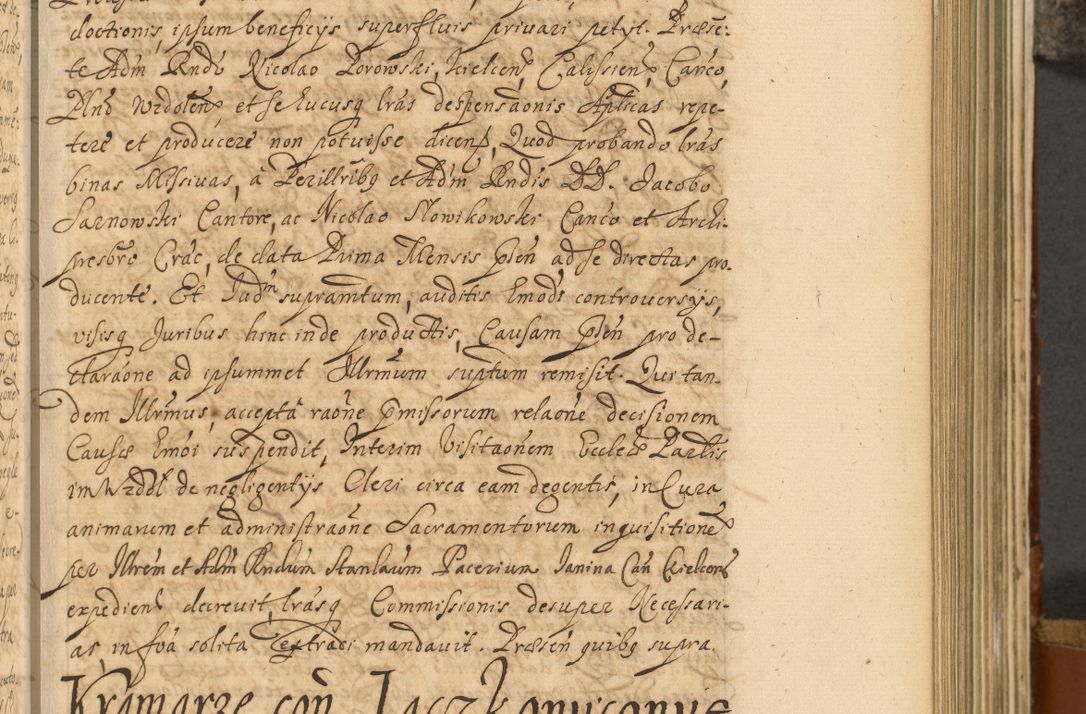 doctionis, ipsum beneficijs superfluis privari petyt. Præsẽ:
te Adm Rndo Nicolao Porowski, Kielceñ, Calissieñ, Canco,
Plno Wzdoleñ, et se hucusq lras despensãonis Aplicas repe-
tere et producere non potuisse diceñ, Quod probando lras
binas Missivas, à Perillribq et Adm Rndis DD. Jacobo
Sarnowski Cantore, ac Nicolao Slowikowski Canco et Archi-
presbro Crac, de data Prima Mensis pñ ad se directas pro-
ducente. Et Judm supramtum, auditis hmodi controversijs,
visisq Juribus hinc inde productis, Causam pñ pro de-
claraone ad ipsummet Illrmum suptum remisit. Qui tan-
dem Illrmus, acceptâ raone pmissorum relaone decisionem
Causæ hmoi suspendit, Interim Visitaonem Eccleæ Parlis
in Wzdol de negligentijs Cleri circa eam degentis, in Cura
animarum et administraone Sacramentorum inquisitione
per Illrem et Adm Rndum Stanlaum Pacerium Janina Can Kielceñ
expedieñ decrevit, lrasq Commissionis desuper Necessari-
as, in foa solita extradi mandavit. Præsen quibq supra.
Kramarze con Jaczkonuconus